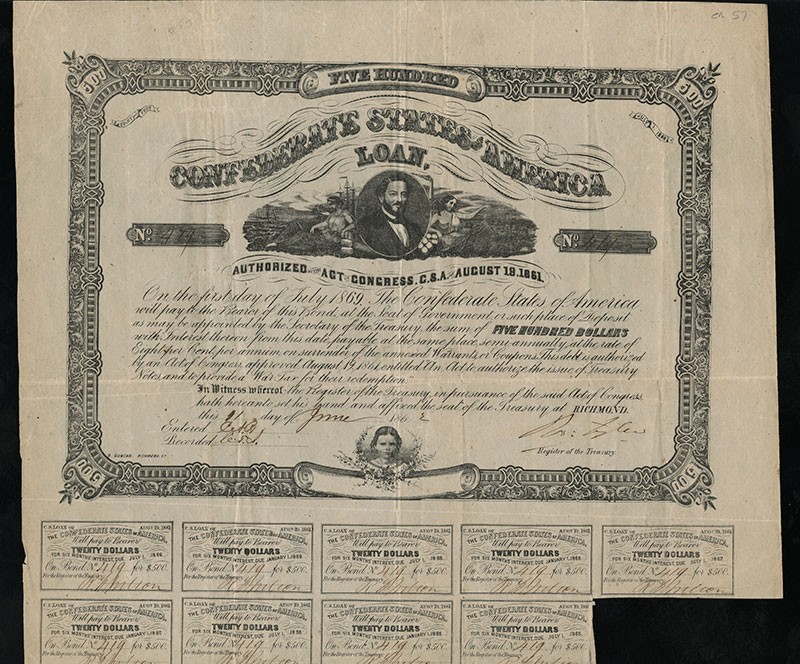 FIVE HUNDRED
500
500
CONFEDERATE STATES OF AMERICA
LOAN,
No. 419
No. 419
AUTHORIZED BY THE ACT OF CONGRESS, C.S.A. OF AUGUST 19, 1861.
On the first day of July 1869, The Confederate States of America
will pay to the Bearer of this Bond, at the Seat of Government, or such place of Deposit
as may be appointed by the Secretary of the Treasury, the sum of FIVE HUNDRED DOLLARS
with Interest thereon from this date, payable at the same place, semi-annually, at the rate of
Eight per Cent. per annum on surrender of the annexed Warrants, or Coupons. This debt is authorized
by an Act of Congress, approved August 19, 1861, entitled An Act to authorize the issue of Treasury
Notes, and to provide a War Tax for their redemption
In Witness whereof the Register of the Treasury, in pursuance of the said Act of Congress,
hath hereunto set his hand and affixed the seal of the Treasury at RICHMOND,
this day of June 1862
Entered
Recorded
Register of the Treasury.
500
500
C.S. LOAN OF AUGT 19, 1861.
THE CONFEDERATE STATES OF AMERICA,
Will pay to Bearer
TWENTY DOLLARS
FOR SIX MONTHS INTEREST, DUE
On Bond No. 419 for $500.
For the Register of the Treasury
C.S. LOAN OF AUGT 19, 1861.
THE CONFEDERATE STATES OF AMERICA,
Will pay to Bearer
TWENTY DOLLARS
FOR SIX MONTHS INTEREST, DUE JANUARY 1,
On Bond No. 419 for $500.
For the Register of the Treasury
C.S. LOAN OF AUGT 19, 1861.
THE CONFEDERATE STATES OF AMERICA,
Will pay to Bearer
TWENTY DOLLARS
FOR SIX MONTHS INTEREST, DUE
On Bond No. 419 for $500.
For the Register of the Treasury
C.S. LOAN OF AUGT 19, 1861.
THE CONFEDERATE STATES OF AMERICA,
Will pay to Bearer
TWENTY DOLLARS
FOR SIX MONTHS INTEREST, DUE JANUARY 1,
On Bond No. 419 for $500.
For the Register of the Treasury
C.S. LOAN OF AUGT 19, 1861.
THE CONFEDERATE STATES OF AMERICA,
Will pay to Bearer
TWENTY DOLLARS
FOR SIX MONTHS INTEREST, DUE JULY 1,
On Bond No. 419 for $500.
For the Register of the Treasury
C.S. LOAN OF AUGT 19, 1861.
THE CONFEDERATE STATES OF AMERICA,
Will pay to Bearer
TWENTY DOLLARS
FOR SIX MONTHS INTEREST, DUE JANUARY 1,
On Bond No. 419 for $500.
C.S. LOAN OF AUGT 19, 1861.
THE CONFEDERATE STATES OF AMERICA,
Will pay to Bearer
TWENTY DOLLARS
FOR SIX MONTHS INTEREST, DUE JULY
On Bond No. 419 for $500.
C.S. LOAN OF AUGT 19, 1861.
THE CONFEDERATE STATES OF AMERICA,
Will pay to Bearer
TWENTY DOLLARS
FOR SIX MONTHS INTEREST, DUE JANUARY 1,
On Bond No. 419 for $500.
C.S. LOAN OF AUGT 19, 1861.
THE CONFEDERATE STATES OF AMERICA,
Will pay to Bearer
TWENTY DOLLARS
FOR SIX MONTHS INTEREST, DUE
On Bond No. 419 for $500.